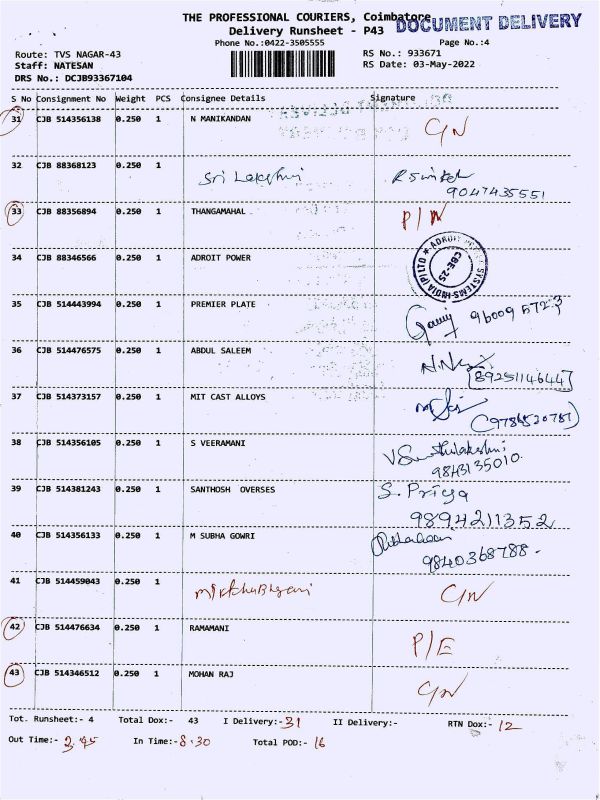 THE PROFESSIONAL COURIERS, Coimbatore
DOCUMENT DELIVERY
Delivery Runsheet - P43
Phone No.:0422-3505555
Page No.:4
Route: TVS NAGAR-43
RS No.: 933671
Staff: NATESAN
RS Date: 03-May-2022
DRS No.: DCJB93367104
S No Consignment No Weight PCS Consignee Details Signature
31 CJB 514356138 0.250 1 N MANIKANDAN C/N
32 CJB 88368123 0.250 1 Sri Lakshmi
9047435551
33 CJB 88356894 0.250 1 THANGAMAHAL P/N
34 CJB 88346566 0.250 1 ADROIT POWER
ADROIT POWER SYSTEMS INDIA (P) LTD CBE-25
35 CJB 514443994 0.250 1 PREMIER PLATE 96009 5723
36 CJB 514476575 0.250 1 ABDUL SALEEM
8925114644
37 CJB 514373157 0.250 1 MIT CAST ALLOYS
38 CJB 514356105 0.250 1 S VEERAMANI
9843135010
39 CJB 514381243 0.250 1 SANTHOSH OVERSES S. Priya
9894211352
40 CJB 514356133 0.250 1 M SUBHA GOWRI
9840368788
41 CJB 514459043 0.250 1 C/N
42 CJB 514476634 0.250 1 RAMAMANI P/E
43 CJB 514346512 0.250 1 MOHAN RAJ C/N
Tot. Runsheet:- 4 Total Dox:- 43 I Delivery:- 31 II Delivery:- RTN Dox:- 12
Out Time:- 2.45 In Time:- 8.30 Total POD:- 16